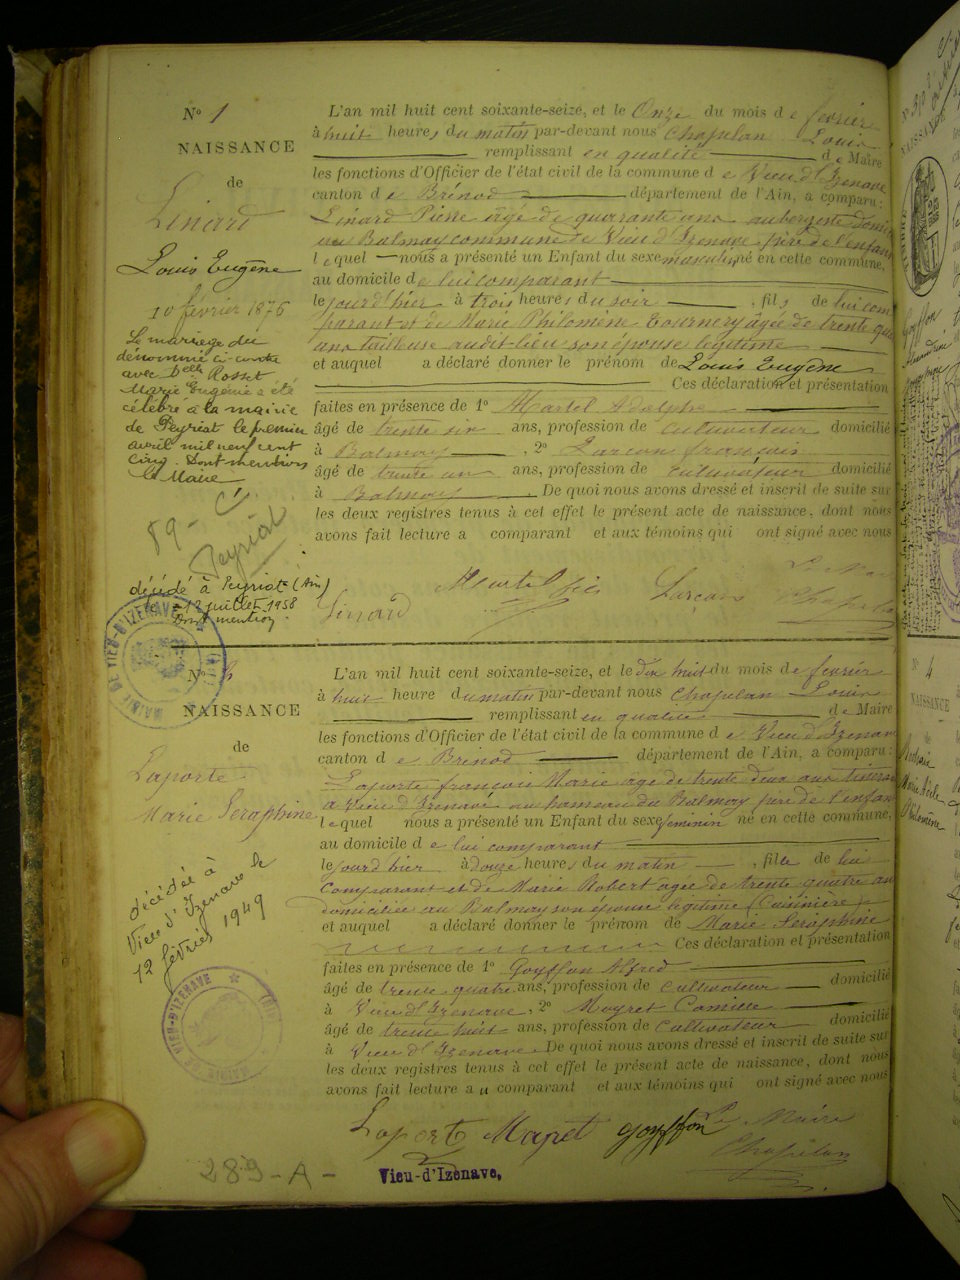 N° 1
NAISSANCE
de
Linard
Louis Eugène
10 février 1876
Le mariage du
dénommé ci contre
avec Delle Rosset
Marie Eugénie a été
célébré à la mairie
de Peyriat le premier
avril mil neuf cent
cinq. Dont mention
le Maire
89 - C.
Peyriat
décédé à Peyriat (Ain)
le 12 juillet 1958
Dont mention
L'an mil huit cent soixante-seize, et le Onze du mois de février
à huit heures du matin par-devant nous Chapelan Louis
remplissant en qualité de Maire
les fonctions d'Officier de l'état civil de la commune de Vieu d'Izenave
canton de Brénod département de l'Ain, a comparu :
Linard Pierre âgé de quarante ans aubergiste
au Balmay commune de Vieu d'Izenave père de l'enfant
lequel nous a présenté un Enfant du sexe masculin né en cette commune,
au domicile de lui comparant
le jourd'hier à trois heures du soir, fils de lui com
parant et de Marie Philomène Tournery âgée de trente
ans tailleuse audit lieu son épouse légitime
et auquel a déclaré donner le prénom de Louis Eugène
Ces déclaration et présentation
faites en présence de 1° Martel Adolphe
âgé de trente six ans, profession de cultivateur domicilié
à Balmay, 2° Larçon français
âgé de trente un ans, profession de cultivateur domicilié
à Balmay. De quoi nous avons dressé et inscrit de suite sur
les deux registres tenus à cet effet le présent acte de naissance, dont nous
avons fait lecture a comparant et aux témoins qui ont signé avec nous
Le Maire
Linard Martel Larçon Chapelan
MAIRIE DE VIEU-D'IZENAVE (AIN)
N°
NAISSANCE
de
Laporte
Marie Seraphine
décédée à
Vieu d'Izenave le
12 février 1949
MAIRIE DE VIEU-D'IZENAVE (AIN)
L'an mil huit cent soixante-seize, et le dix huit du mois de février
à huit heure du matin par-devant nous Chapelan Louis
remplissant en qualité de Maire
les fonctions d'Officier de l'état civil de la commune de Vieu d'Izenave
canton de Brénod département de l'Ain, a comparu :
Laporte françois Marie âgé de trente deux ans
a Vieu d'Izenave au hameau du Balmay père de l'enfant
lequel nous a présenté un Enfant du sexe féminin né en cette commune,
au domicile de lui comparant
le jourd'hier à douze heures du matin, fille de lui
comparant et de Marie Robert agée de trente quatre ans
domiciliée au Balmay son épouse légitime (Cuisinière)
et auquel a déclaré donner le prénom de Marie Seraphine
Ces déclaration et présentation
faites en présence de 1° Goyffon Alfred
âgé de trente quatre ans, profession de cultivateur domicilié
à Vieu d'Izenave, 2° Moyret Camille
âgé de trente huit ans, profession de cultivateur domicilié
à Vieu d'Izenave. De quoi nous avons dressé et inscrit de suite sur
les deux registres tenus à cet effet le présent acte de naissance, dont nous
avons fait lecture au comparant et aux témoins qui ont signé avec nous
Laporte goyffon Le Maire
Chapelan
289-A-
Vieu-d'Izenave,
N° 4
NAISSANCE